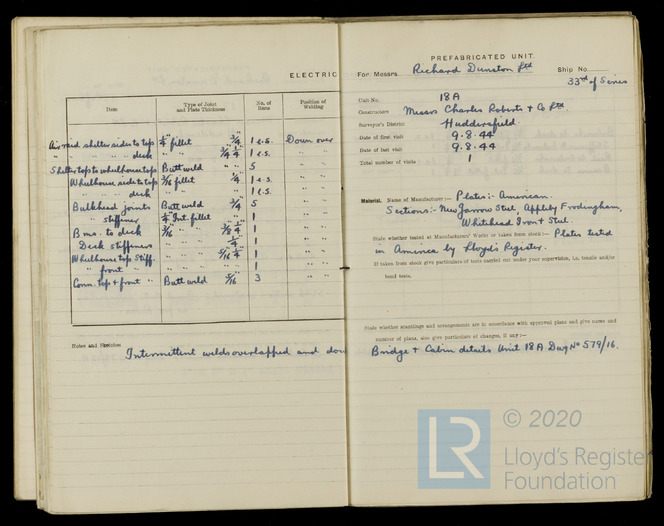 ELECTRIC
Item
Type of Joint and Plate Thickness
No. of Runs
Position of Welding
Air raid shelter sides to top 1/4" fillet 3/4 1 e.s. Down over
" " " " deck " " 3/4 1/4 1 e.s. " "
Shelter top to wheelhouse top Butt weld " 5 " "
Wheelhouse side to top 3/16 fillet 1/4 1 e.s. " "
" " deck " " " 1 e.s. " "
Bulkhead joints Butt weld 3/4 5 " "
" stiffener 1/4" Int. fillet " 1 " "
Bms. to deck 3/16 " " 1/4 1 " "
Deck stiffeners " " " 1/4 1 " "
Wheelhouse top Stiff. " " " 5/16 1/4 1 " "
" front " " " " " 1 " "
Conn. top + front " Butt weld 5/16 3 " "
Notes and Sketches
Intermittent welds overlapped and dow
PREFABRICATED UNIT.
For Messrs Richard Dunston Ltd Ship No.
33rd of Series
Unit No. 18A
Constructors Messrs Charles Roberts & Co Ltd.
Surveyor's District Huddersfield
Date of first visit 9.8.44
Date of last visit 9.8.44
Total number of visits 1
Material. Name of Manufacturer :— Plates :- American.
Sections :- New Jarrow Steel, Appleby Frodingham,
Whitehead Iron & Steel.
State whether tested at Manufacturers' Works or taken from stock :— Plates tested
in America by Lloyd's Register.
If taken from stock give particulars of tests carried out under your supervision, i.e. tensile and/or
bend tests.
State whether scantlings and arrangements are in accordance with approved plans and give name and
number of plans, also give particulars of changes, if any :—
Bridge + Cabin details Unit 18A Dwg No 579/16.
LR
© 2020
Lloyd's Register
Foundation